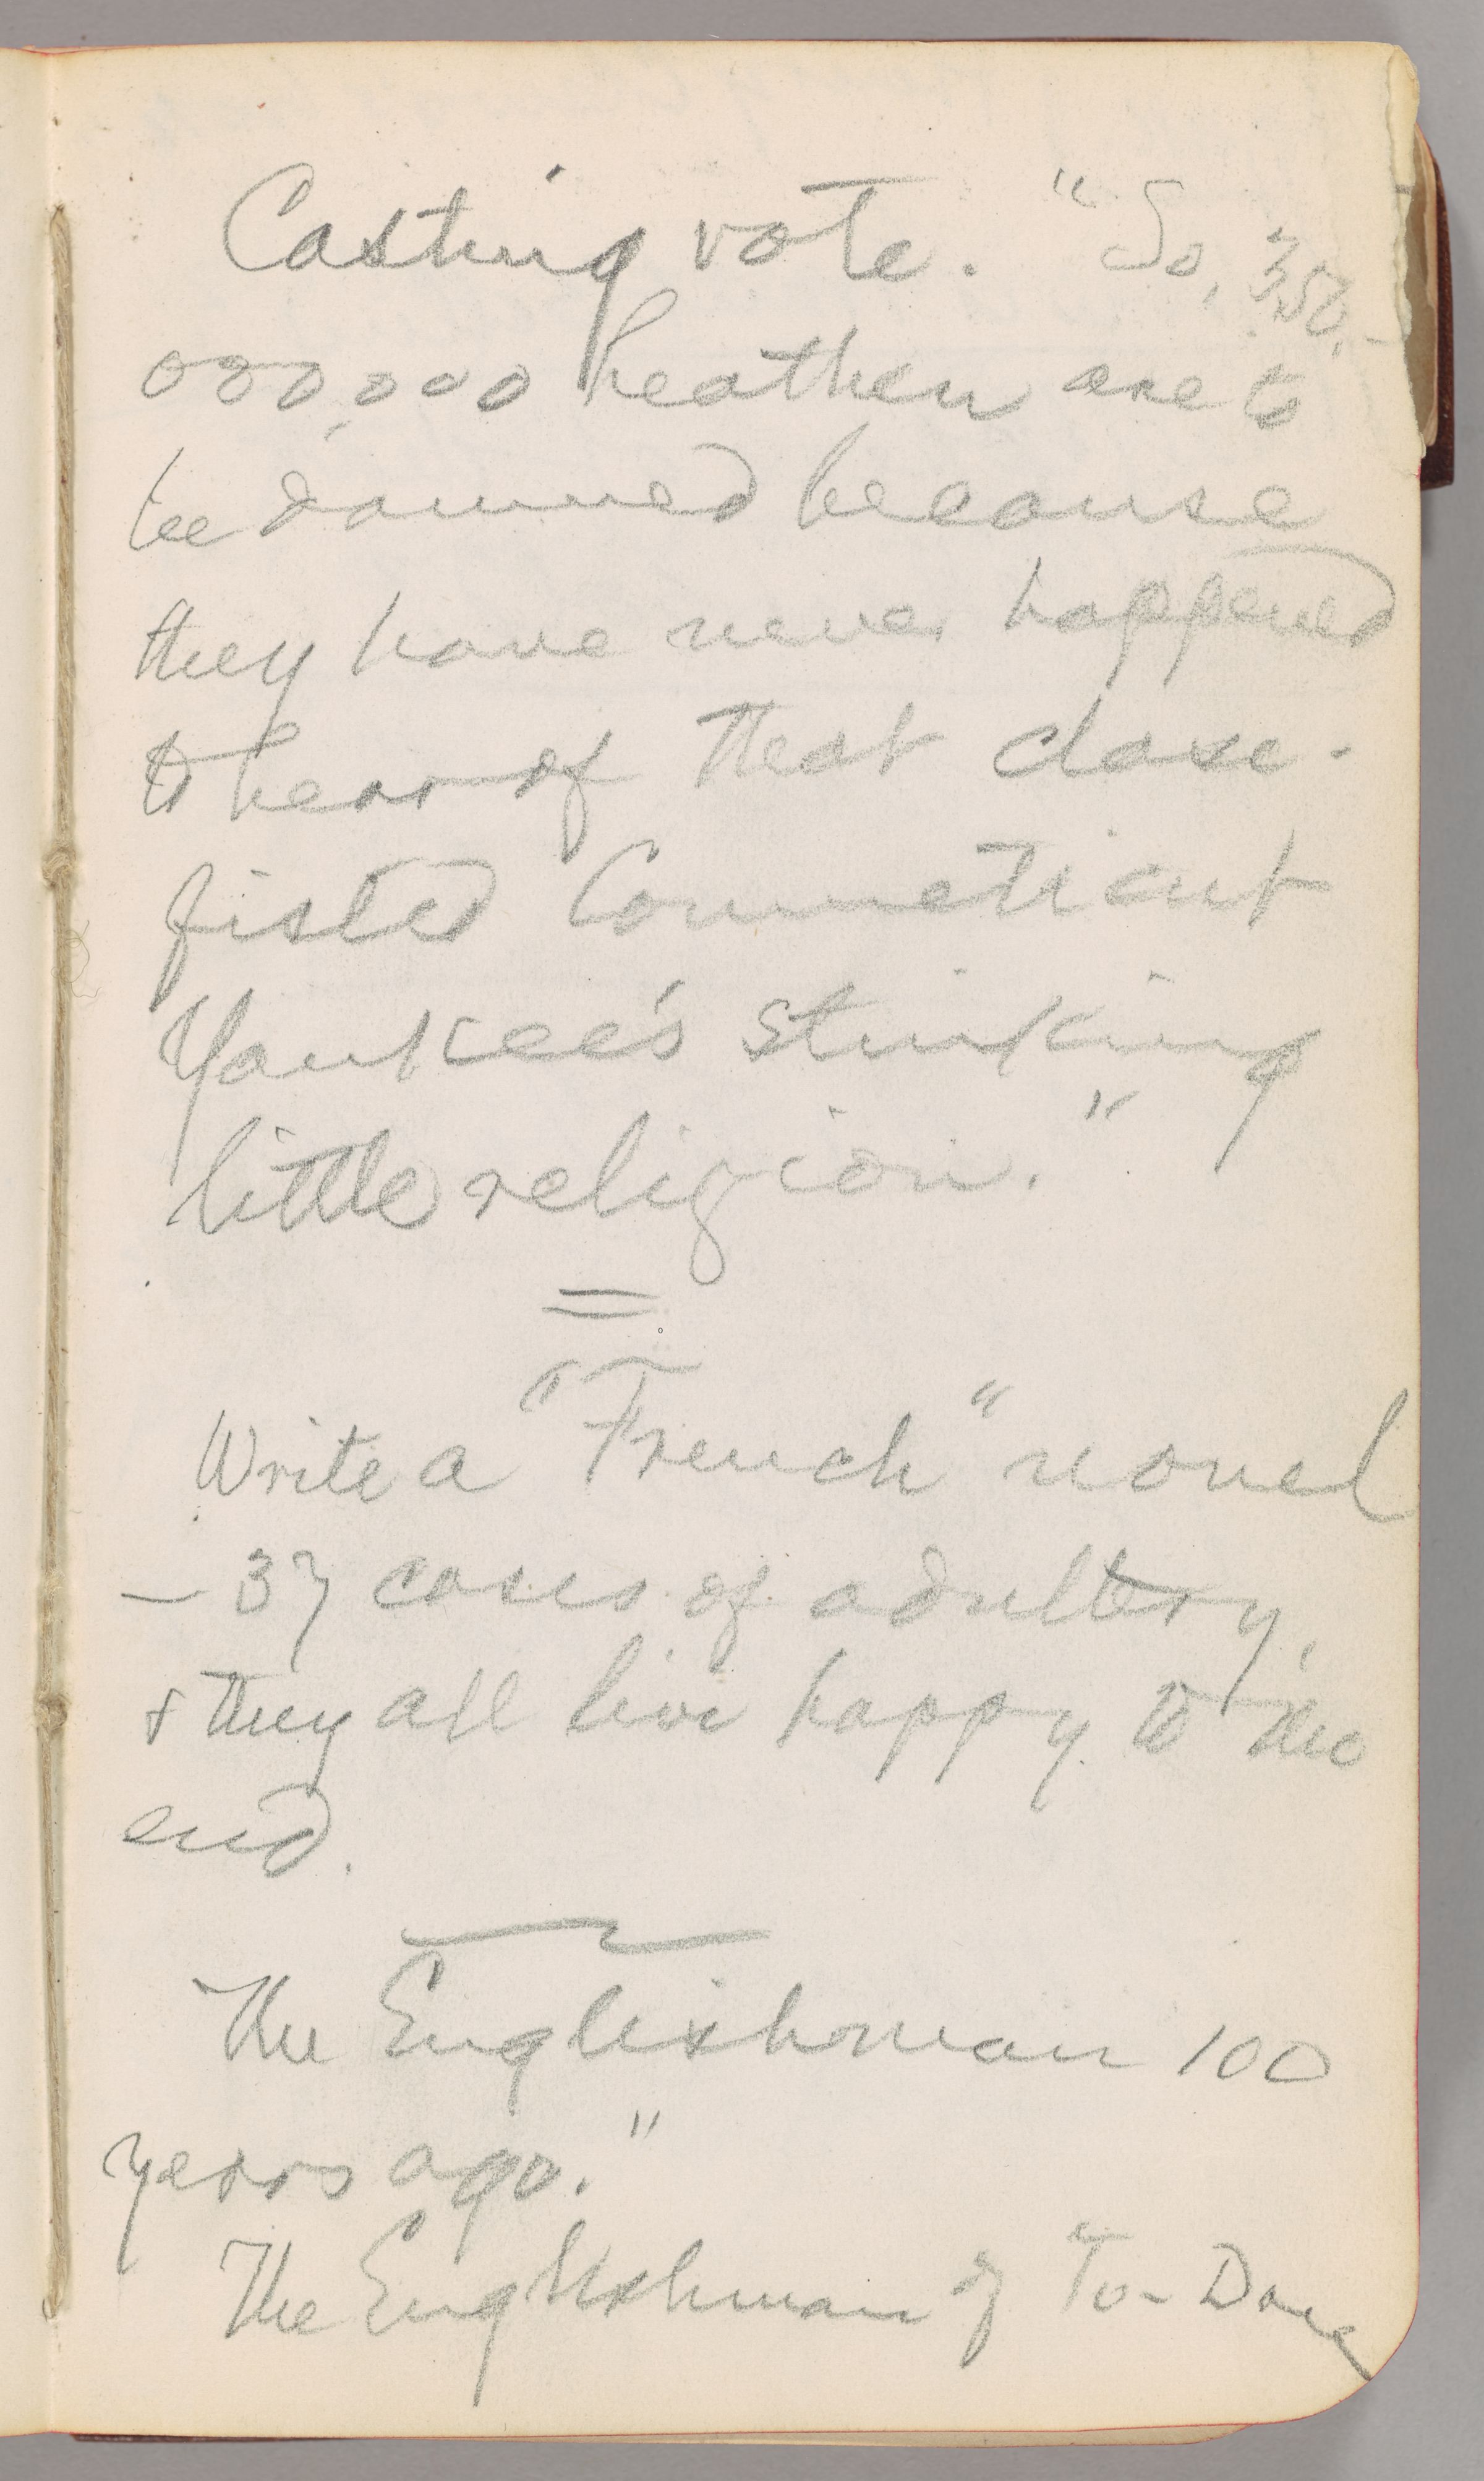 Casting vote. "So, 350,-
000,000 heathen are to
be damned because
they have never happened
to hear of that close-
fisted Connecticut
Yankee's stinking
little religion."
=
Write a "French" novel
— 37 cases of adultery,
& they all live happy to the
end.
The Englishman 100
years ago."
The Englishman of To-Day